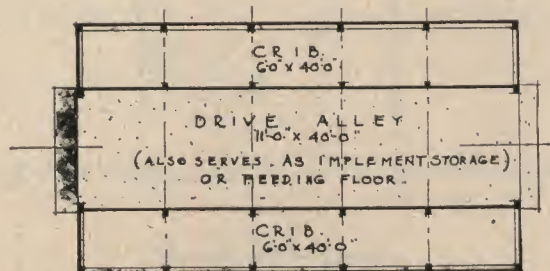 CRIB.
6'0" x 40'-0"
DRIVE ALLEY
11'-0" x 40'-0"
(ALSO SERVES AS IMPLEMENT STORAGE)
OR FEEDING FLOOR.
CRIB.
6'0" x 40'0"